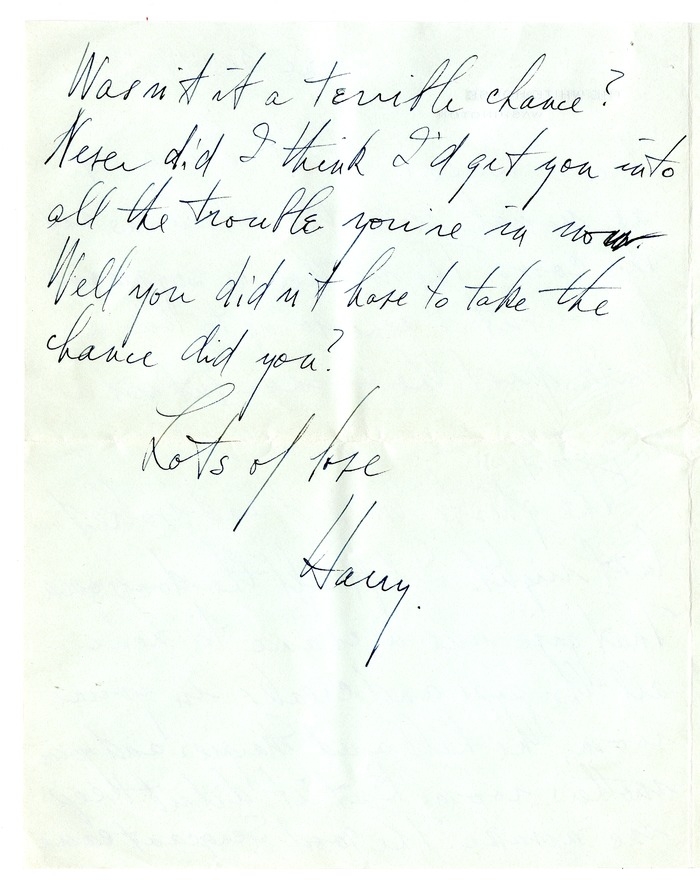 Wasn't it a terrible chance?
Never did I think I'd get you into
all the trouble you're in now.
Well you didn't have to take the
chance did you?
Lots of love
Harry.